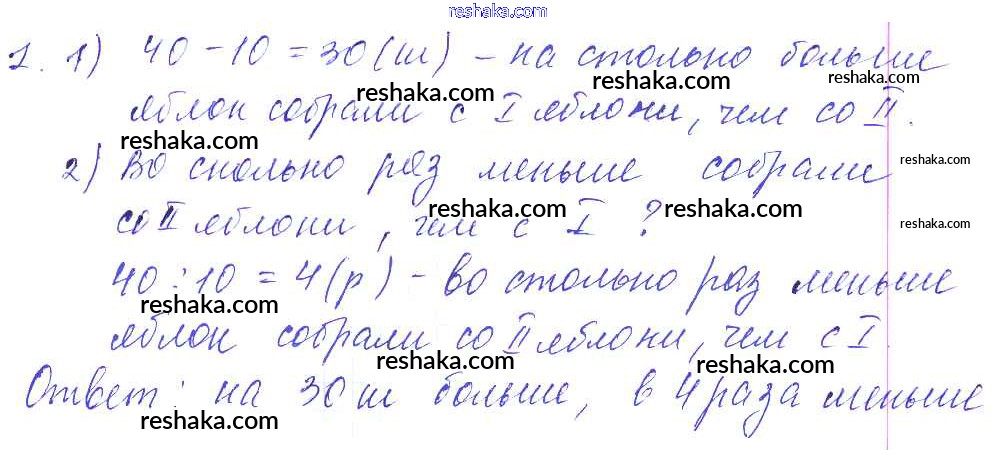 reshaka.com
1. 1) 40 - 10 = 30 (ш) - на столько больше
reshaka.com reshaka.com reshaka.com
яблок собрали с I яблони, чем со II.
reshaka.com
2) Во сколько раз меньше собрали
reshaka.com
со II яблони, чем с I ?
reshaka.com reshaka.com reshaka.com
40 : 10 = 4 (р) - во столько раз меньше
reshaka.com
яблок собрали со II яблони, чем с I.
reshaka.com reshaka.com
Ответ: на 30 ш больше, в 4 раза меньше
reshaka.com